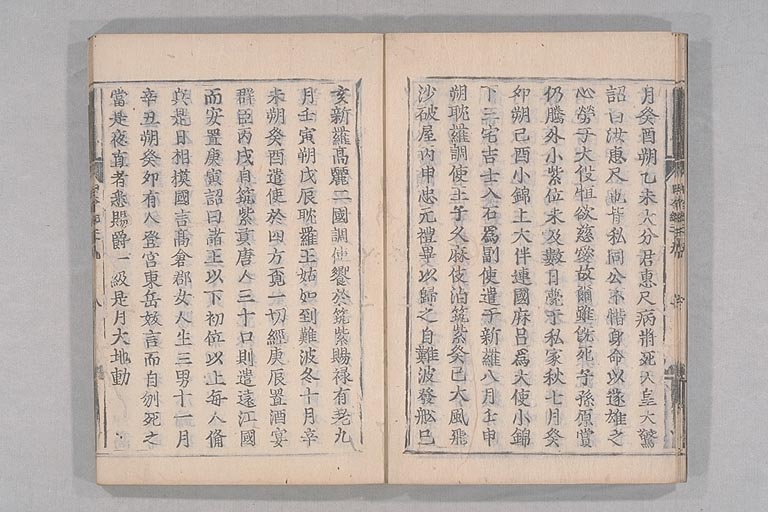 月癸酉朔乙未大分君惠尺病將死天皇大驚
詔曰汝惠尺也背私向公不惜身命以遂雄之
心勞于大役恒欲慈愛故爾雖旣死子孫厚賞
仍騰外小紫位未及數日薨于私家秋七月癸
卯朔己酉小錦上大伴連國麻呂爲大使小錦
下三宅吉士入石爲副使遣于新羅八月壬申
朔耽羅調使王子久麻伎泊筑紫癸巳大風飛
沙破屋丙申忠元禮畢以歸之自難波發舩己
亥新羅高麗二國調使饗於筑紫賜祿有差九
月壬寅朔戊辰耽羅王姑如到難波冬十月辛
未朔癸酉遣使於四方覓一切經庚辰置酒宴
群臣丙戌自筑紫貢唐人三十口則遣遠江國
而安置庚寅詔曰諸王以下初位以上每人備
兵是日相模國言高倉郡女人生三男十一月
辛丑朔癸卯有人登宮東岳妖言而自刎死之
當是夜直者悉賜爵一級是月大地動
八